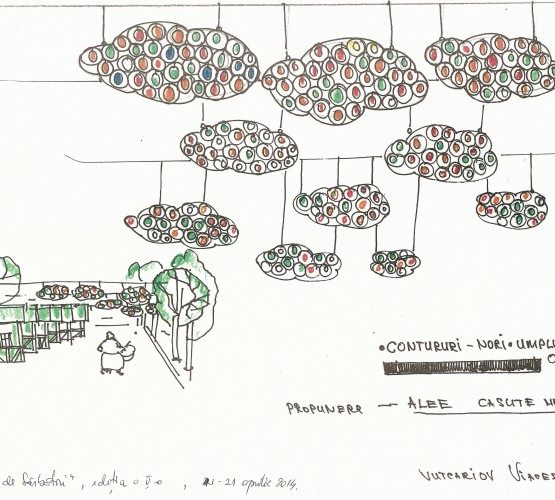 •CONTURURI - NORI • UMPLU
PROPUNERE — ALEE CASUTE
de Sărbători", ediția a V-a, -21 aprilie 2014.
VUTCARIOV VIACES